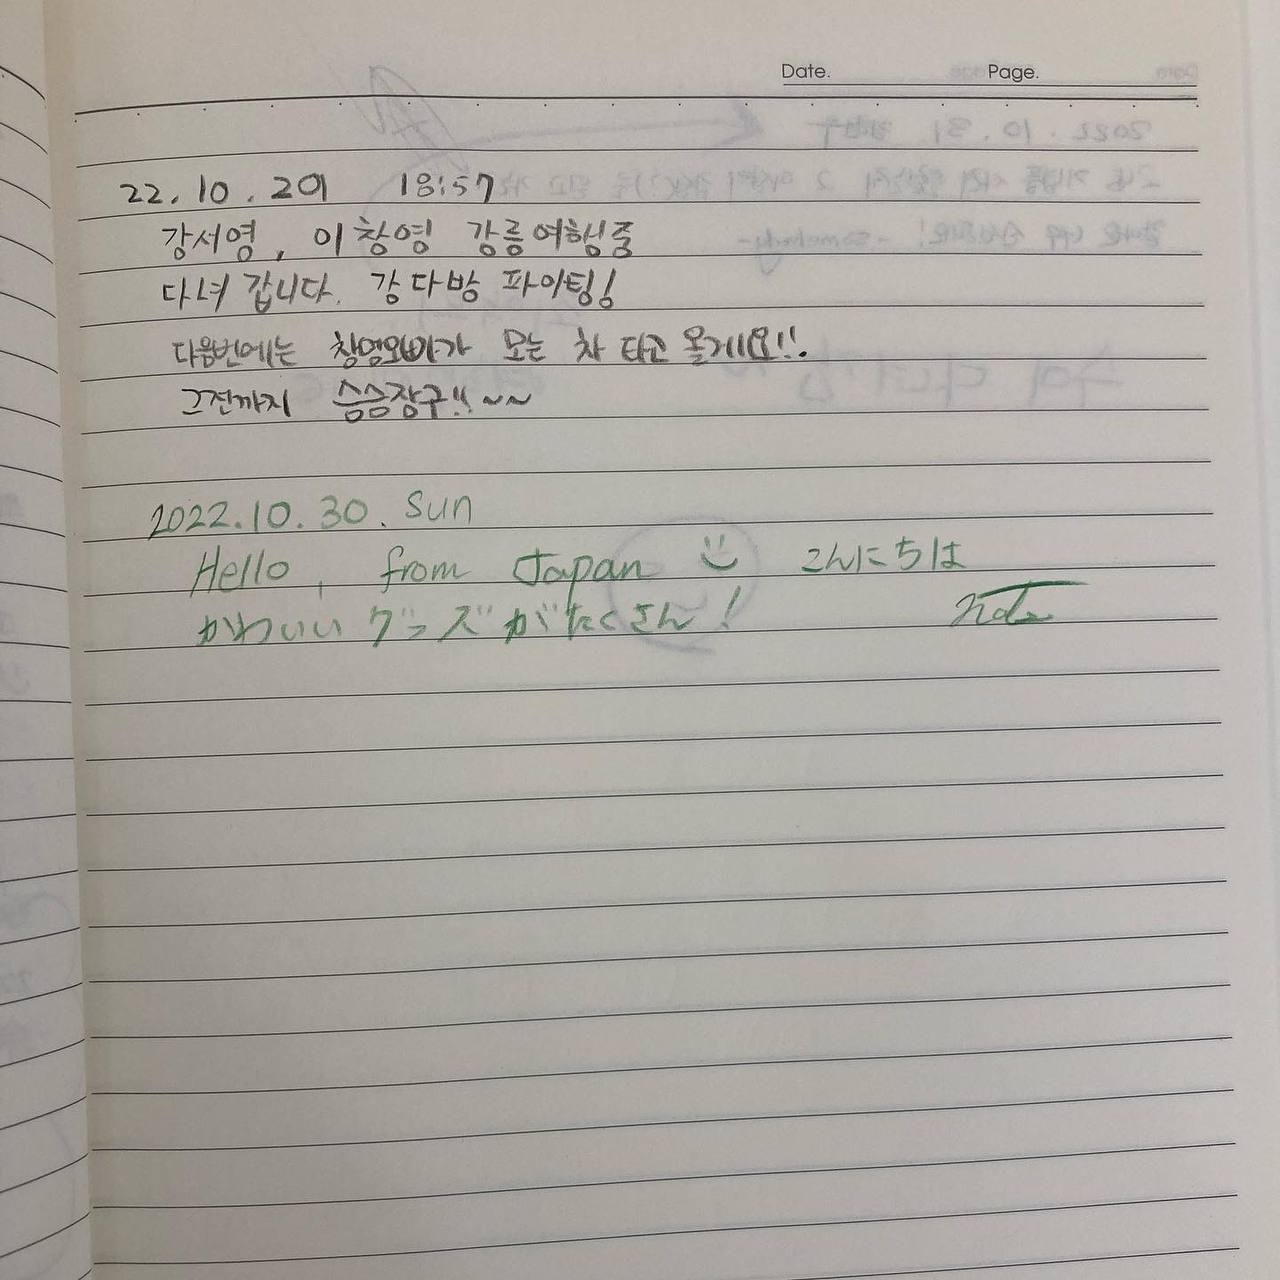 Date. Page.
22. 10. 29 18:57
강서영, 이창영 강릉여행중
다녀갑니다. 강다방 파이팅!
다음번에는 창영오빠가 모는 차 타고 올게요!!
그전까지 승승장구!! ~~
2022.10.30. Sun
Hello, from Japan こんにちは
かわいい グッズがたくさん!